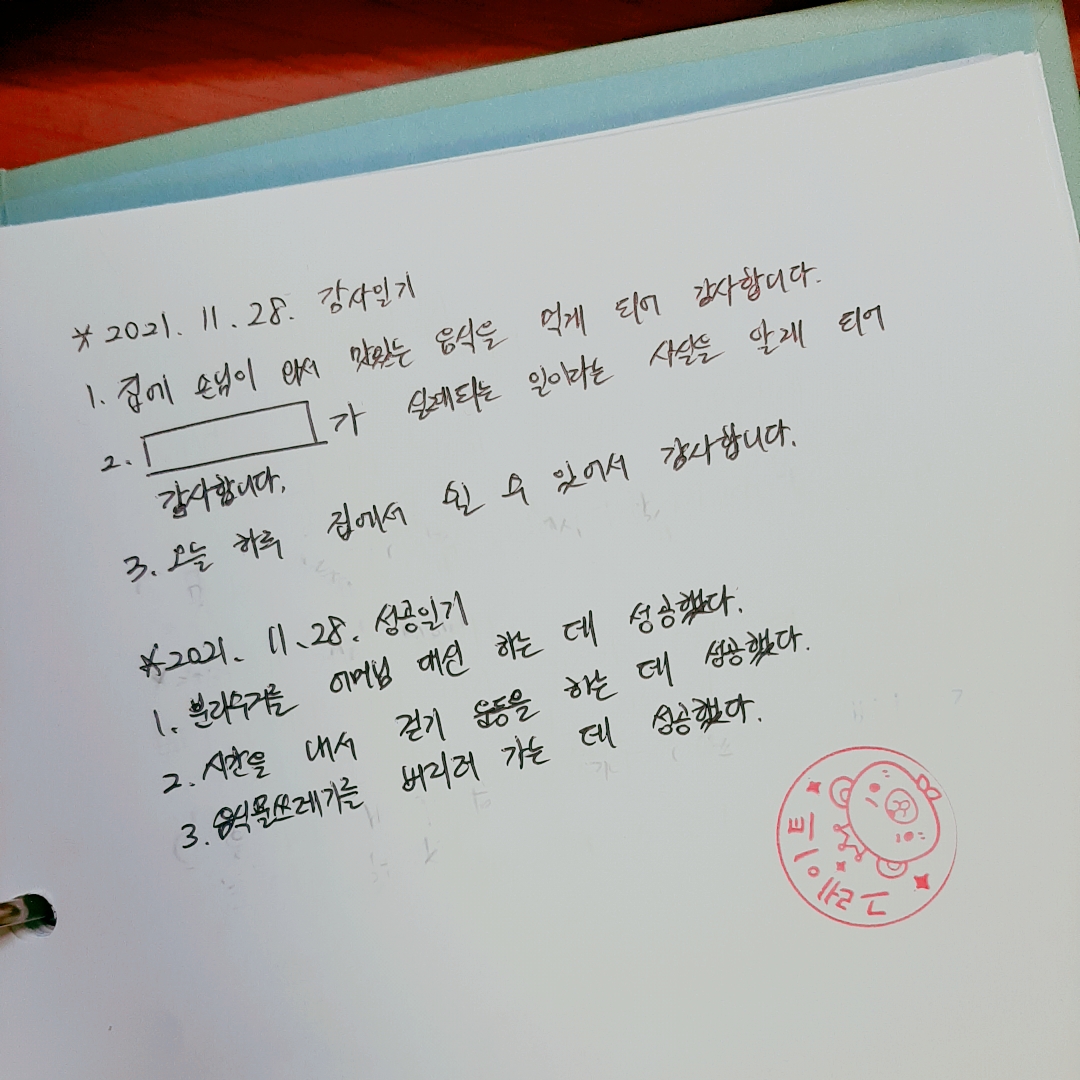 * 2021. 11. 28. 감사일기
1. 집에 손님이 와서 맛있는 음식을 먹게 되어 감사합니다.
2. 가 설레되는 일이라는 사실을 알게 되어
감사합니다.
3. 오늘 하루 집에서 쉴 수 있어서 감사합니다.
* 2021. 11. 28. 성공일기
1. 분리수거를 어머님 대신 하는 데 성공했다.
2. 시간을 내서 걷기 운동을 하는 데 성공했다.
3. 음식물쓰레기를 버리러 가는 데 성공했다.
그래이트